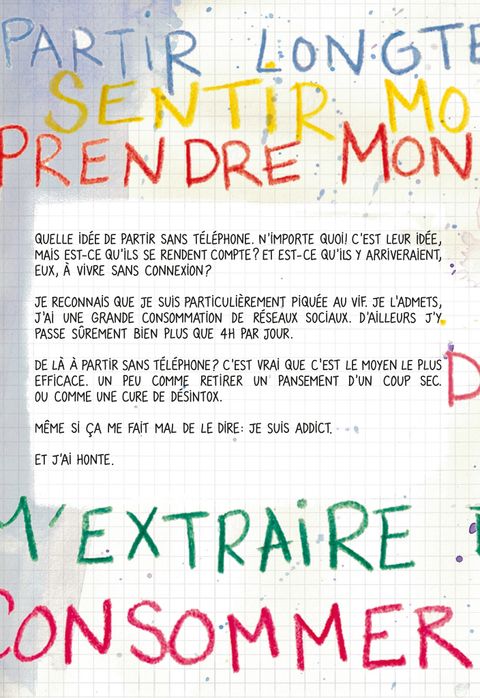 PARTIR LONGTE
SENTIR MO
PRENDRE MON
QUELLE IDÉE DE PARTIR SANS TÉLÉPHONE. N'IMPORTE QUOI! C'EST LEUR IDÉE,
MAIS EST-CE QU'ILS SE RENDENT COMPTE? ET EST-CE QU'ILS Y ARRIVERAIENT,
EUX, À VIVRE SANS CONNEXION?
JE RECONNAIS QUE JE SUIS PARTICULIÈREMENT PIQUÉE AU VIF. JE L'ADMETS,
J'AI UNE GRANDE CONSOMMATION DE RÉSEAUX SOCIAUX. D'AILLEURS J'Y
PASSE SÛREMENT BIEN PLUS QUE 4H PAR JOUR.
DE LÀ À PARTIR SANS TÉLÉPHONE? C'EST VRAI QUE C'EST LE MOYEN LE PLUS
EFFICACE. UN PEU COMME RETIRER UN PANSEMENT D'UN COUP SEC.
OU COMME UNE CURE DE DÉSINTOX.
D
MÊME SI ÇA ME FAIT MAL DE LE DIRE: JE SUIS ADDICT.
ET J'AI HONTE.
M'EXTRAIRE
CONSOMMER